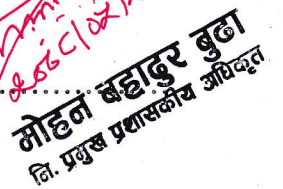 २०७८/०२/
मोहन बहादुर बुढा
नि. प्रमुख प्रशासकीय अधिकृत